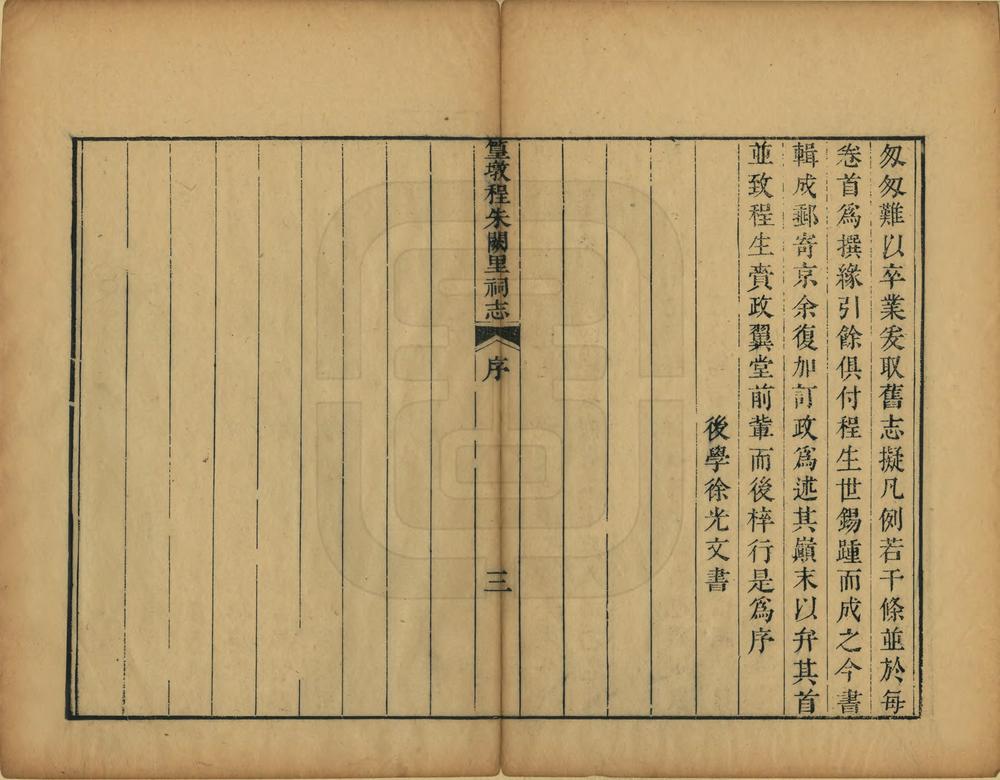 匆匆難以卒業爰取舊志擬凡例若干條並於每
卷首爲撰緣引餘俱付程生世錫踵而成之今書
輯成郵寄京余復加訂政爲述其巔末以弁其首
並致程生賷政翼堂前輩而後梓行是爲序
後學徐光文書
篁墩程朱闕里祠志
序
三